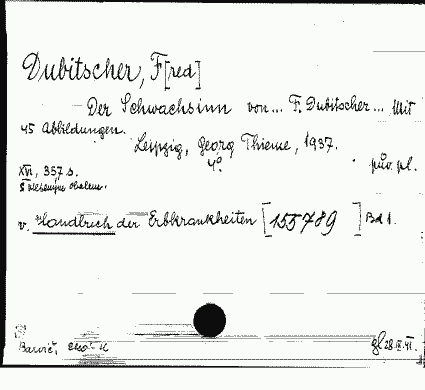 Dubitscher, F[red]
Der Schwachsinn von... F. Dubitscher... Mit
45 Abbildungen.
Leipzig, Georg Thieme, 1937.
4°. pův. pl.
XVI, 357 s.
v. Handbuch der Erbkrankheiten [155789] Bd 1.
gl 28.IX.41.